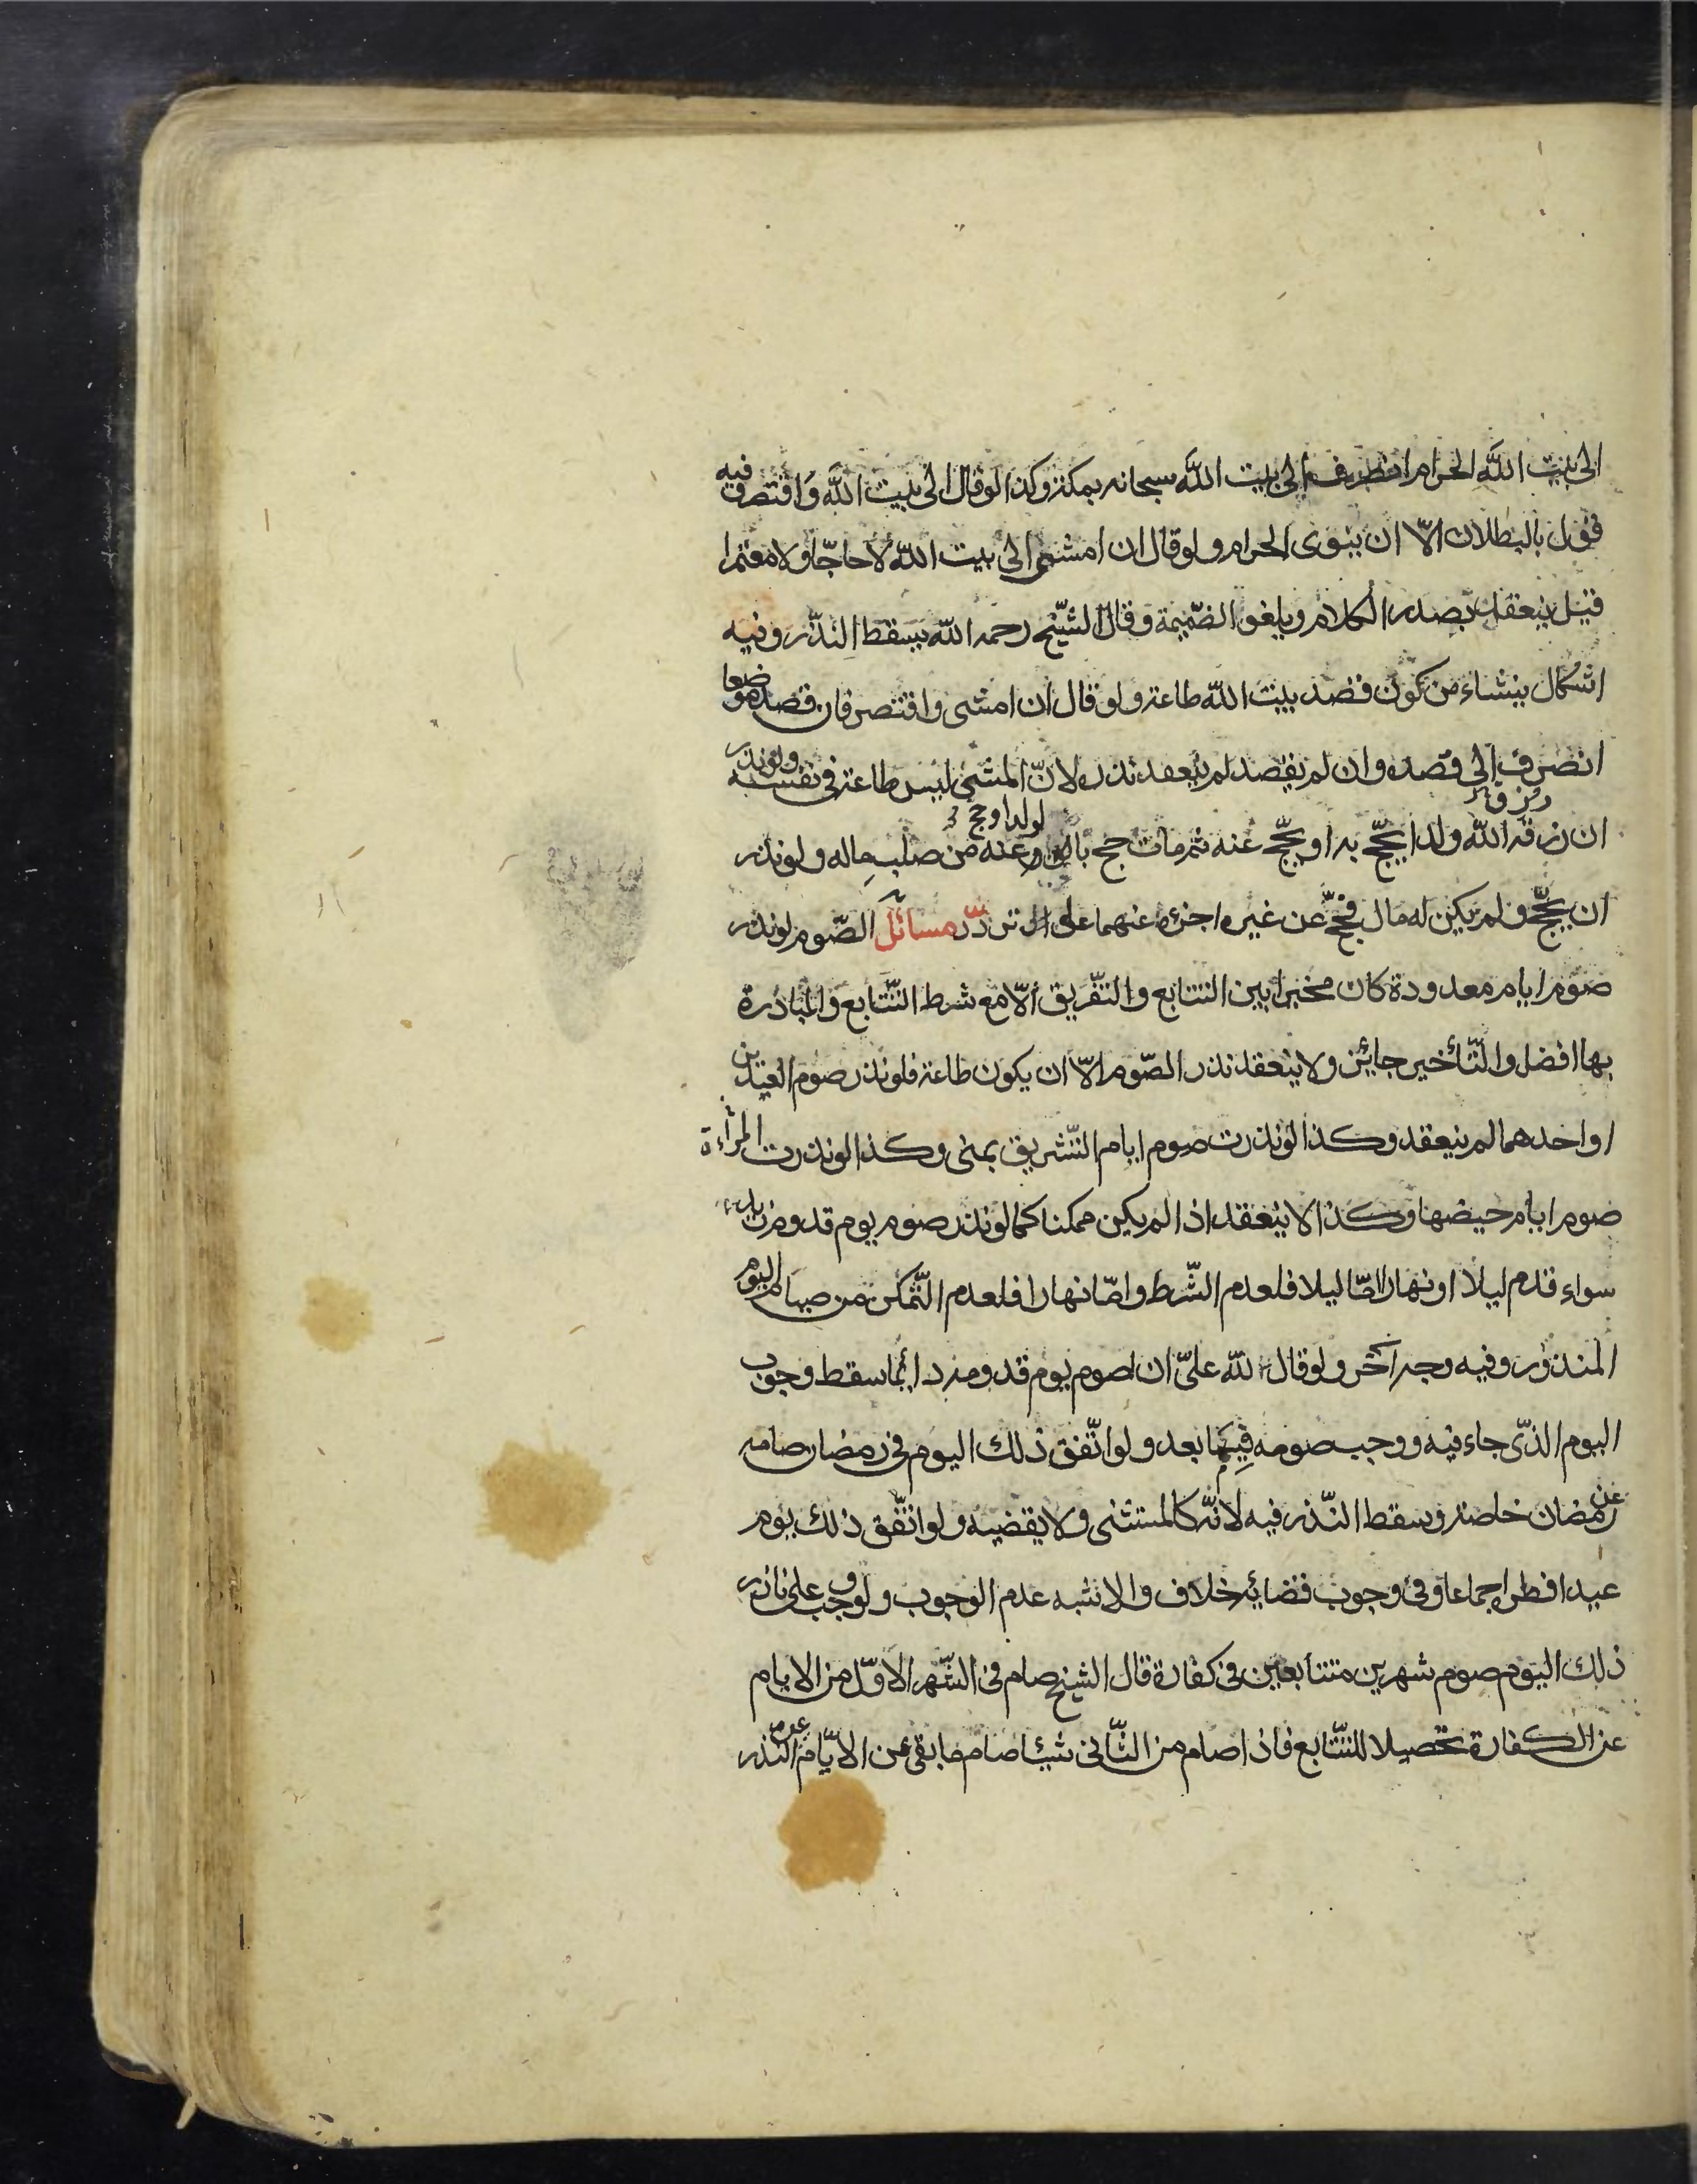 الى بيت الله الحرام انصرف الى بيت الله سبحانه بمكة وكذا لو قال الى بيت الله واقتصر وفيه
قول بالبطلان الّا ان ينوى الحرام ولو قال ان امشى الى بيت الله لا حاجّا ولا معتمرا
قيل ينعقد بصدر الكلام ويلغو الضّميمة وقال الشّيخ رحمه الله يسقط النذر وفيه
اشكال ينشاء من كون قصد بيت الله طاعة ولو قال ان امشى واقتصر فان قصد موضعا
انصرف الى قصده وان لم يقصد لم ينعقد نذره لانّ المشى ليس طاعة فى نفسه ولو نذر
رزق
ان رزقه الله ولدا يحجّ به او يحجّ عنه ثم مات حج بالولد او عنه من صلب ماله ولو نذر
لولد او حج
ان يحجّ ولم يكن له مال فحجّ عن غيره اجزء عنهما على تردّد مسائل الصّوم لو نذر
صوم ايام معدودة كان مخيرا بين التتابع والتفريق الّا مع شرط التّتابع والمبادرة
بها افضل والتّأخير جايز ولا ينعقد نذر الصّوم الّا ان يكون طاعة فلو نذر صوم العيدين
او احدهما لم ينعقد وكذا لو نذرت صوم ايام التّشريق بمنى وكذا لو نذرت المرأة
صوم ايام حيضها وكذا لا ينعقد اذا لم يكن ممكنا كما لو نذر صوم يوم قدوم زيد
سواء قدم ليلا او نهارا امّا ليلا فلعدم الشّرط وامّا نهارا فلعدم التّمكن من صيام اليوم
المنذور وفيه وجه آخر ولو قال لله علىّ ان اصوم يوم قدومه دائما سقط وجوب
اليوم الذّى جاء فيه ووجب صومه فيما بعد ولو اتّفق ذلك اليوم فى رمضان صامه
عن رمضان خاصة وسقط النّذر فيه لانّه كالمستثنى ولا يقضيه ولو اتّفق ذلك يوم
عيد افطر اجماعا وفى وجوب قضائه خلاف والاشبه عدم الوجوب ولو وجب على ناذر
ذلك اليوم صوم شهرين متتابعين فى كفارة قال الشيخ صام فى الشّهر الاوّل من الايام
عن الكفارة تحصيلا للتّتابع فاذا صام من الثّانى شيئا صام ما بقى من الايّام عن النّذر